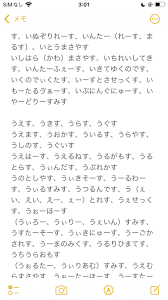 3:01
メモ
す、いぬぞりれーす、いんたー（れーす、ま
るす）、いとうまさやす
いしはら（かわ）まさやす、いちれいしてき
す、いんたーふぇーす、いきてゆくのです、
いくのでぃくたす、いーすとさせっくす、い
もーたるうぉーす、いぶにんぐにゅーす、い
やーどりーすみす
うえす、うきす、うらす、うぐす
うえます、うおかす、ういるす、うらやす、
うしのす、うぐいす
うえはーす、うえるねす、うるがもす、うる
とらす、うぃんだす、うぶかかす
うのとしやす、うぃきそーす、うーるわー
す、うぃるすみす、うつるんです、う（え
い、えい、えー、ぇ）とれす、うぇせっく
す、うぉーほーす
（うぃろー、うぃりー、うぇいん）すみす、
うすたーそーす、うぃきにゅーす、うーごか
されす、うーまのみくす、うるりひますす、
うちうらおもす
（うぉるたー、うぃりあむ）すみす、うえむ